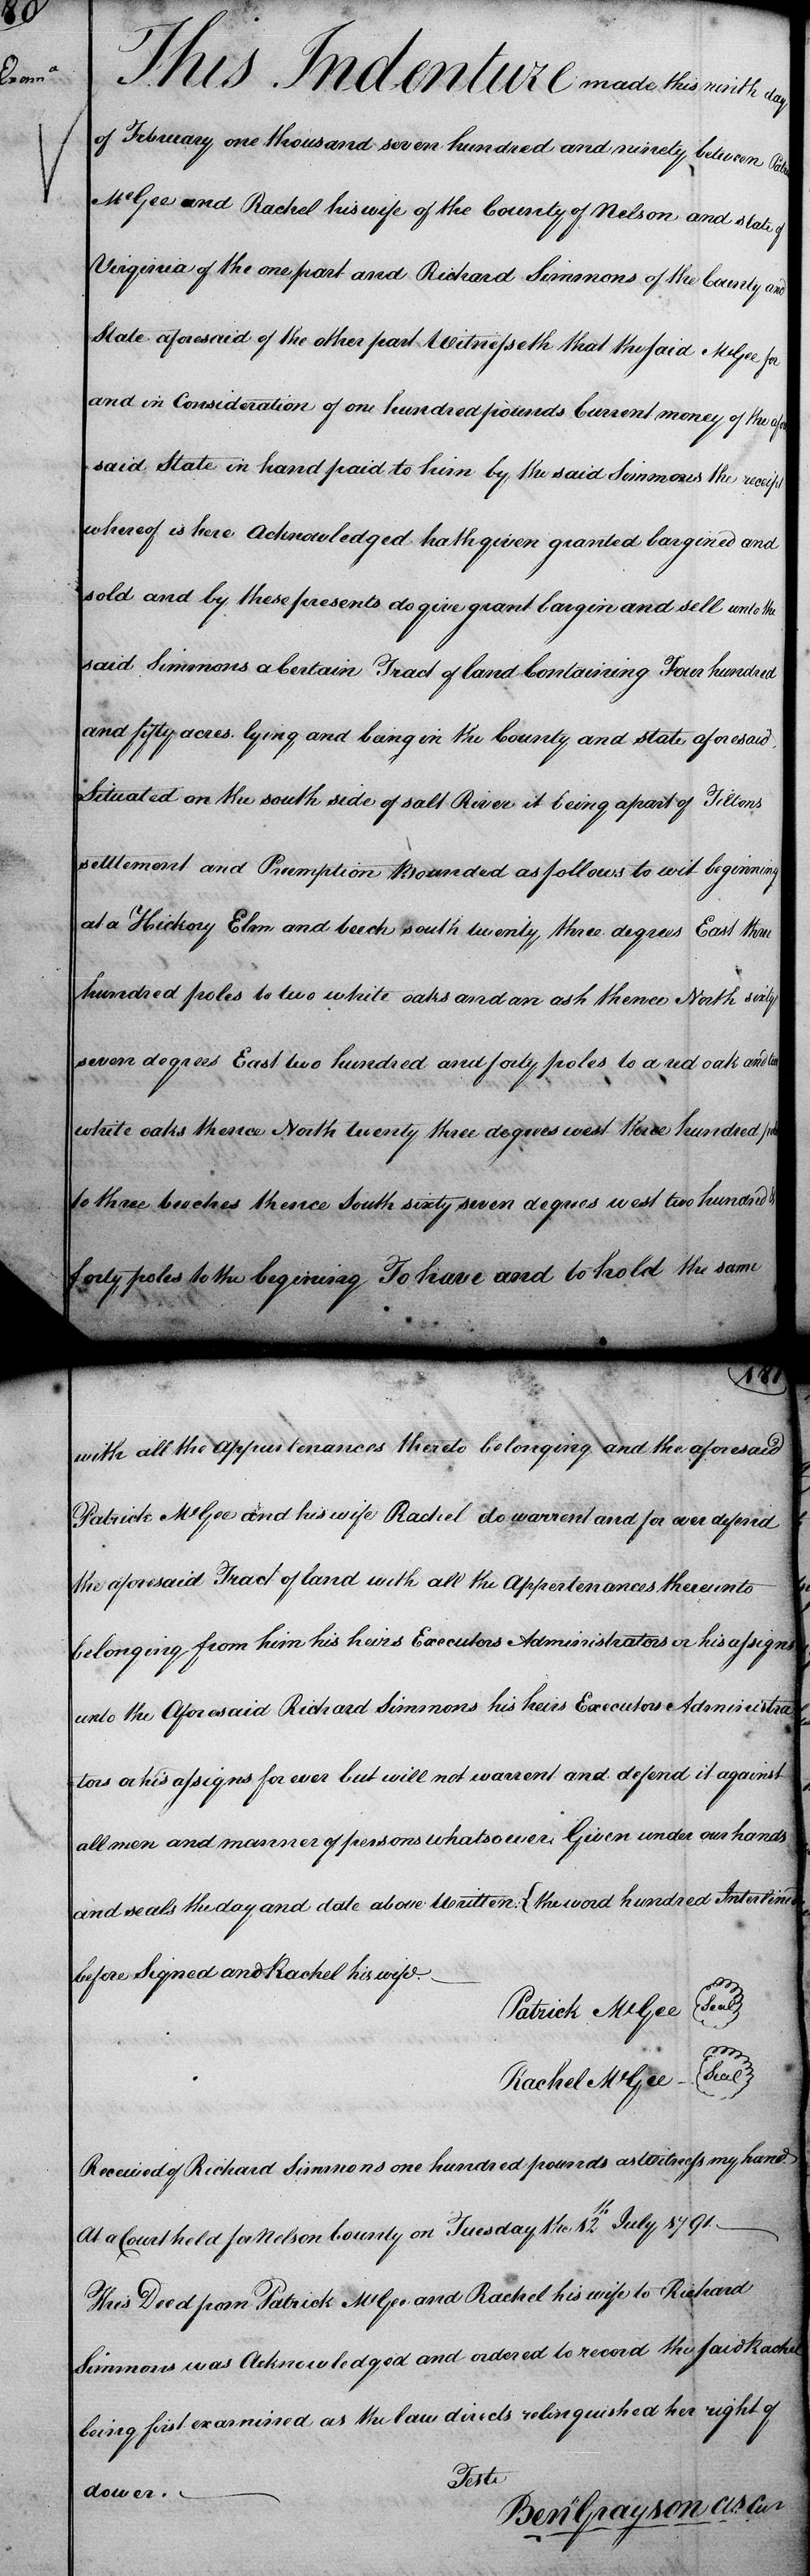 180
Exam.d
This Indenture made this ninth day
of February one thousand seven hundred and ninety between Patri
McGee and Rachel his wife of the County of Nelson and state of
Virginia of the one part and Richard Simmons of the County and
State aforesaid of the other part Witnesseth that the said McGee for
and in Consideration of one hundred pounds Current money of the afore
said State in hand paid to him by the said Simmons the receipt
whereof is here Acknowledged hath given granted bargined and
sold and by these presents do give grant bargin and sell unto the
said Simmons a Certain Tract of land Containing Four hundred
and fifty acres. lying and being in the County and state aforesaid,
Situated on the south side of salt River it being apart of Tiltons
settlement and Preemption Bounded as follows to wit beginning
at a Hickory Elm and beech south twenty three degrees East three
hundred poles to two white oaks and an ash thence North sixty
seven degrees East two hundred and forty poles to a red oak and two
white oaks thence North twenty three degrees west three hundred poles
to three beeches thence South sixty seven degrees west two hundred &
forty poles to the begining To have and to hold the same
181
with all the appurtenances thereto belonging and the aforesaid
Patrick McGee and his wife Rachel do warrent and for ever defend
the aforesaid Tract of land with all the Appertenances thereunto
belonging from him his heirs Executors Administrators or his assigns
unto the Aforesaid Richard Simmons his heirs Executors Administra
tors or his assigns for ever but will not warrent and defend it against
all men and manner of persons whatsoever. Given under our hands
and seals the day and date above Written. { the word hundred Interlined
before Signed and Rachel his wife.
Patrick McGee Seal
Rachel McGee Seal
Received of Richard Simmons one hundred pounds as Witness my hand
At a Court held for Nelson County on Tuesday the 12th July 1791
This Deed from Patrick McGee and Rachel his wife to Richard
Simmons was Acknowledged and ordered to record the said Rachel
being first examined as the law directs relinquished her right of
dower.
Teste
Ben Grayson Cls Cur